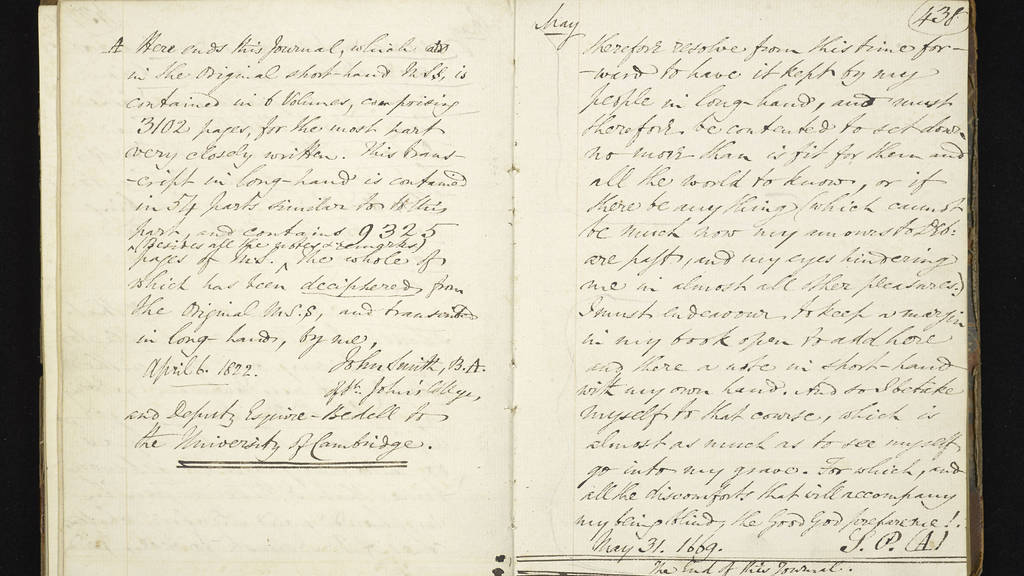 A Here ends this Journal, which
in the Original short-hand M.S.S, is
contained in 6 Volumes, comprising
3102 pages, for the most part
very closely written. This trans-
-cript in long-hand is contained
in 54 parts similar to this
part, and contains 9325
(besides all the notes & remarks)
pages of M.S. ^ The whole of
which has been deciphered from
the Original M.S.S, and transcribed
in long-hand, by me,
April 6. 1822. John Smith, B.A.
of St. John's College,
and Deputy Esquire-Bedell to
the University of Cambridge.
May
438
therefore resolve from this time for-
-ward to have it kept by my
people in long-hand, and must
therefore be contented to set down
no more than is fit for them and
all the world to know, or if
there be any thing (which cannot
be much now my amours to Deb:
are past, and my eyes hindering
me in almost all other pleasures.)
I must endeavour to keep a margin
in my book open to add here
and there a note in short-hand
with my own hand. And so I betake
myself to that course, which is
almost as much as to see myself
go into my grave. For which, and
all the discomforts that will accompany
my being blind, the Good God prepare me!
May 31. 1669. S. P. (A)
The End of this Journal.